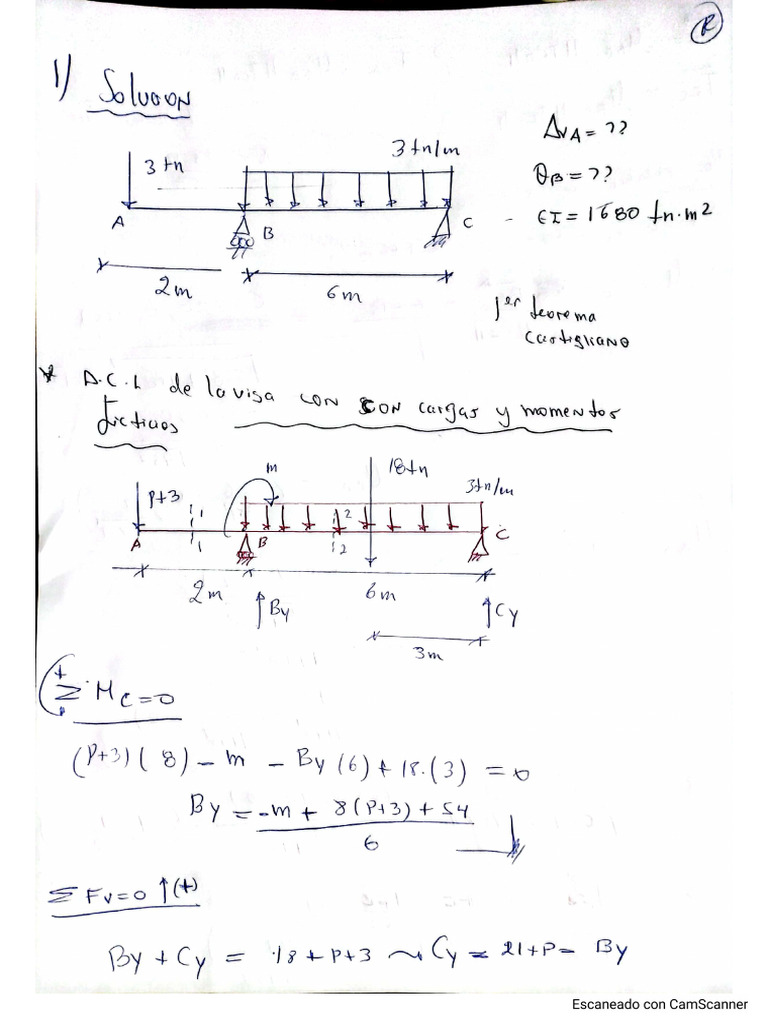 R
1) Solucion
3 tn
3 tn/m
A
B
C
2m
6m
ΔvA = ??
θB = ??
- EI = 1680 tn·m2
1er teorema
Castigliano
* D.C.L de la viga con con cargas y momentos
ficticios
P+3
m
18tn
3tn/m
1
1
2
2
A
B
C
2m
6m
By
Cy
3m
+ Σ MC = 0
(P+3)(8) - m - By(6) + 18.(3) = 0
By = -m + 8(P+3) + 54
6
Σ Fv=0 ↑(+)
By + Cy = 18 + P+3 ~ Cy = 21+P- By
Escaneado con CamScanner